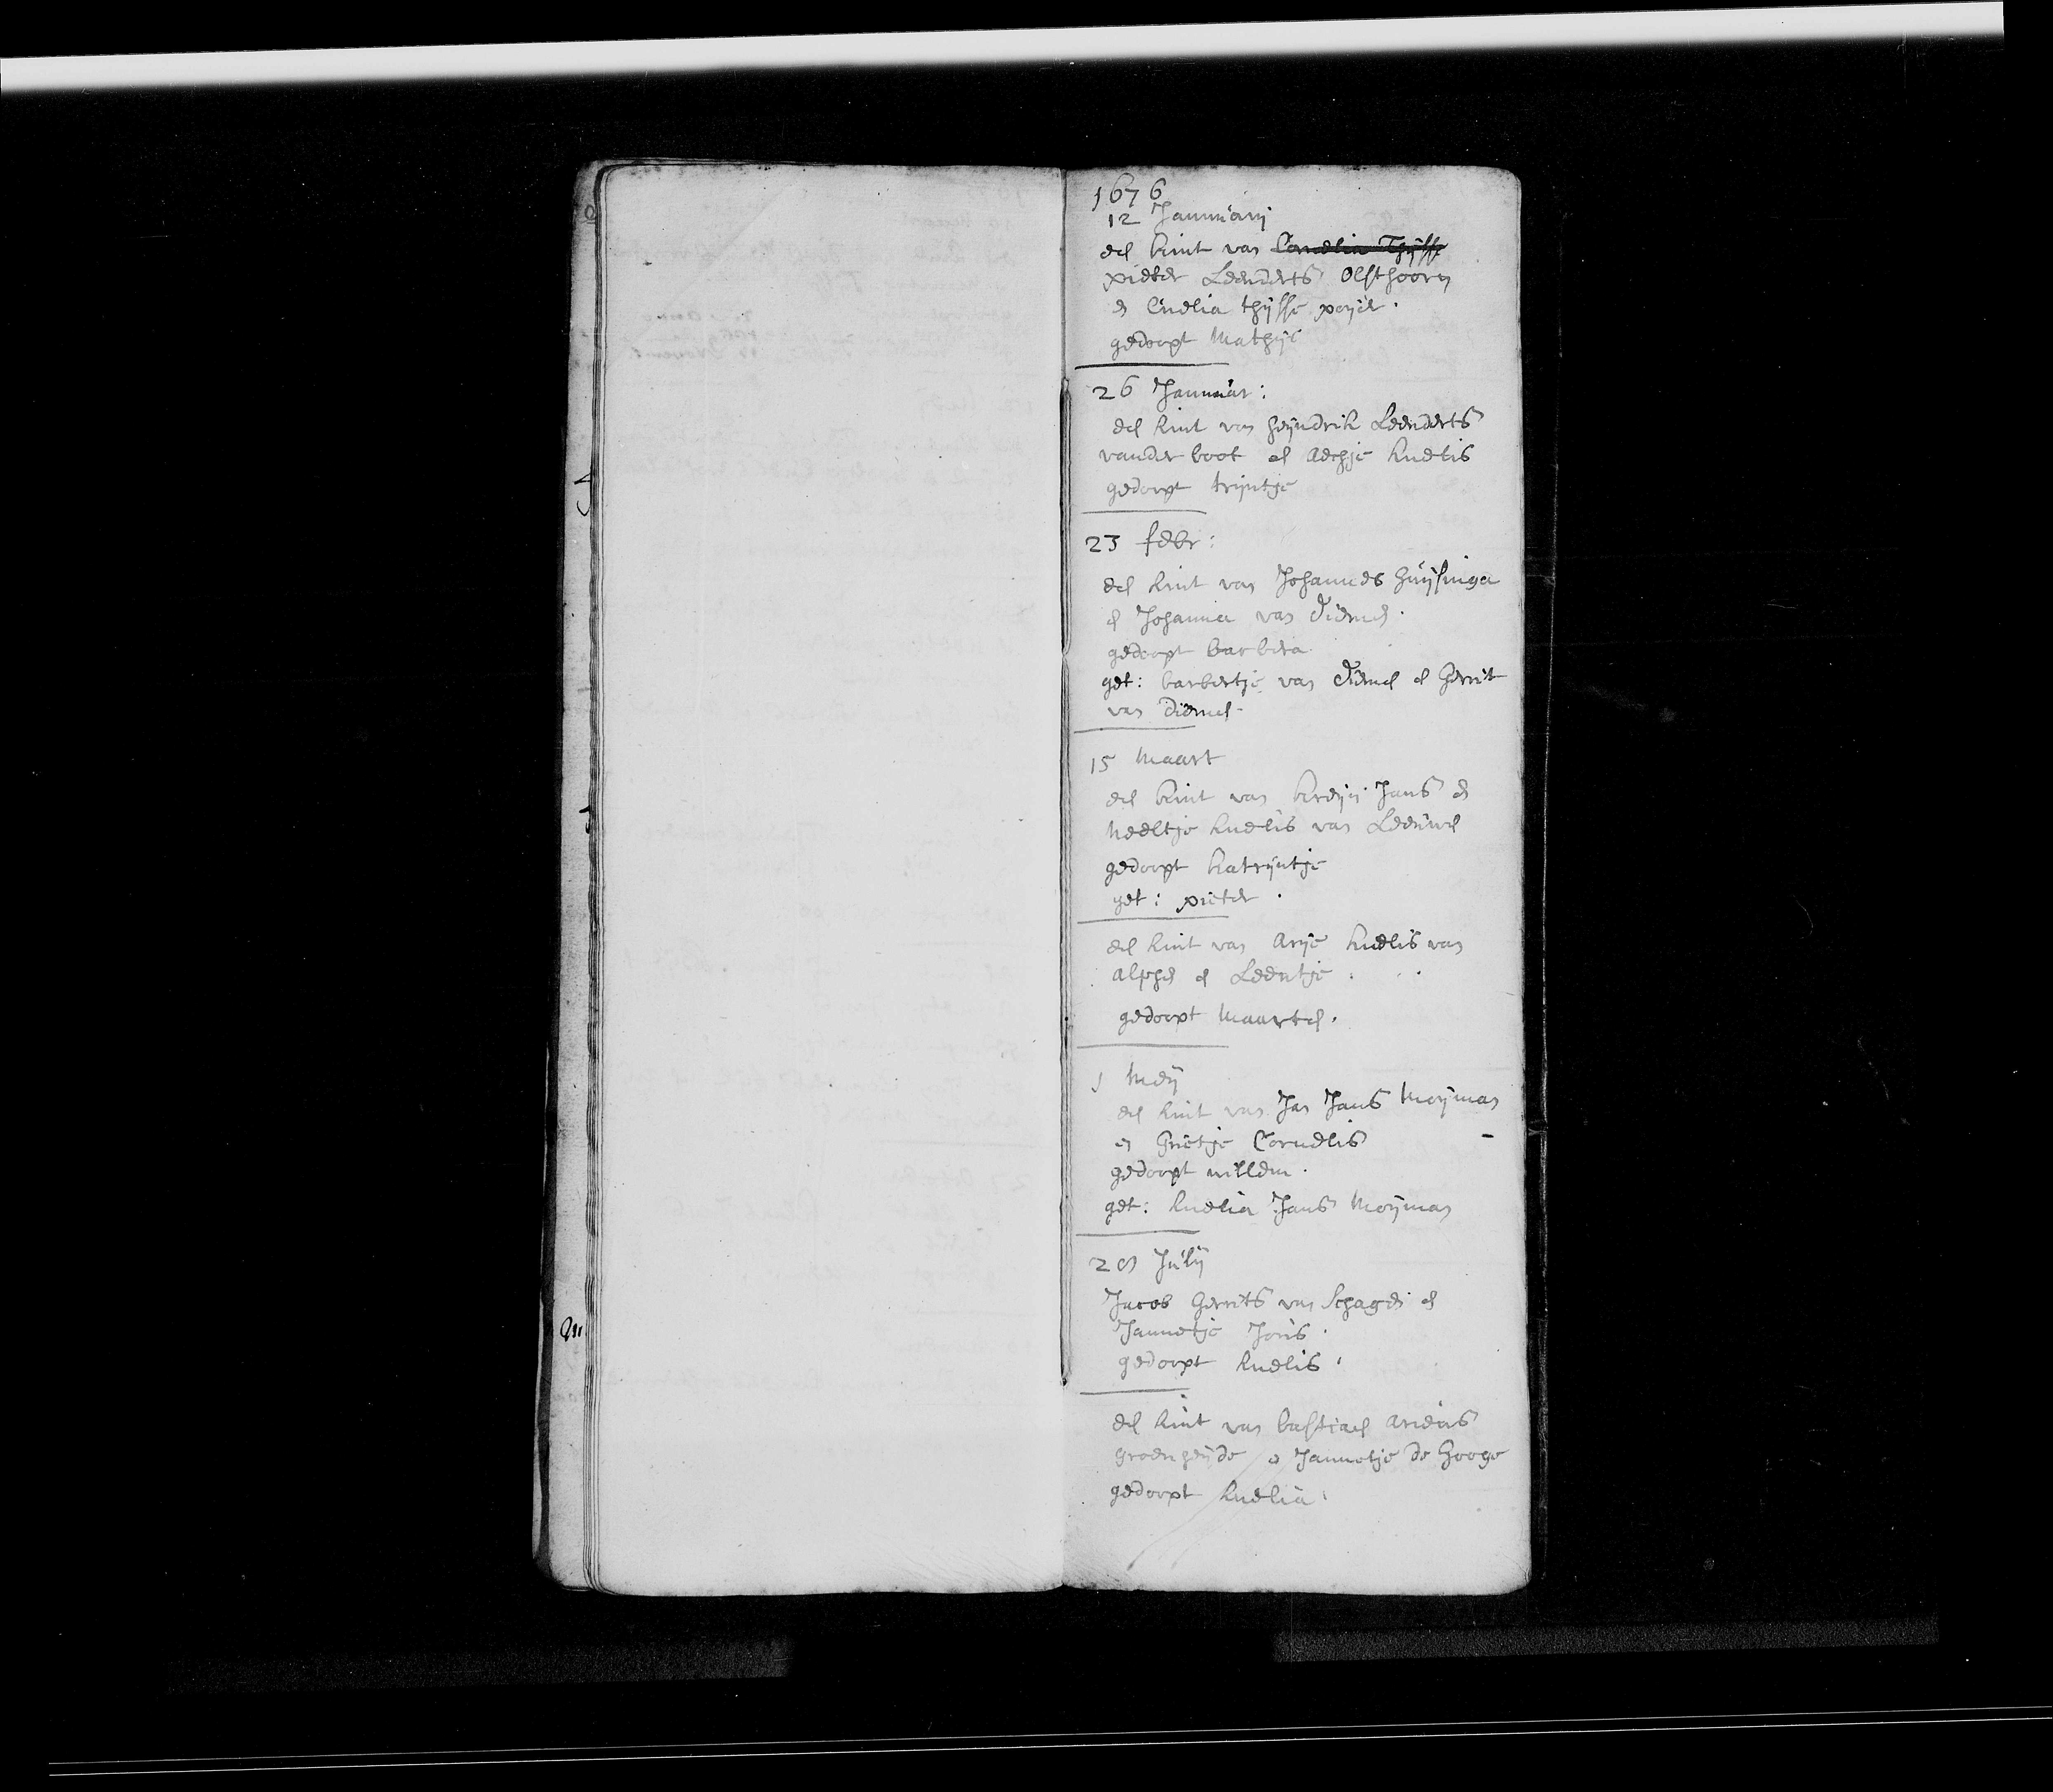 1676
12 Januarij
een kint van Cornelia Thijsse
pieter Leenderts Olsthoorn
en Cnelia thijsse
gedoopt Mathijs
26 Januar:
een kint van heijndrik Leenderts
vander boot en Aechje knelis
gedoopt trijntje
23 febr:
een kint van Johannes huijsinga
en Johanna van diemen.
gedoopt barbera
get: barbertje van diemen en Gerrit
van Diemen.
15 Maart
een kint van krijn Jans en
Neeltje knelis van Leeuwen
gedoopt katrijntje
get: pieter .
een kint van Arije knelis van
alphen en Leentje .
gedoopt Maarten.
1 Meij
een kint van Jan Jans Moijman
en Grietje Cornelis
gedoopt willem.
get: knelia Jans Moijman
Julij
Jacob Gerrits van Schagen en
Jannetje Joris.
gedoopt knelis.
een kint van bastiaen Ariens
groenheijde en Jannetje de hooge
gedoopt knelia.